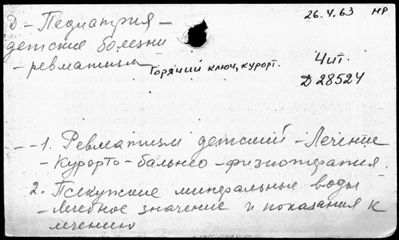 Д-Педиатрия -
26.4.63 НР
детские болезни
- ревматизм
Горячий ключ, курорт.
Чит.
Д 28524
- - 1. Ревматизм детский - Лечение
- Курорто - бальнео - физиотерапия.
2. Псекупские минеральные воды
- лечебное значение и показания к
лечению